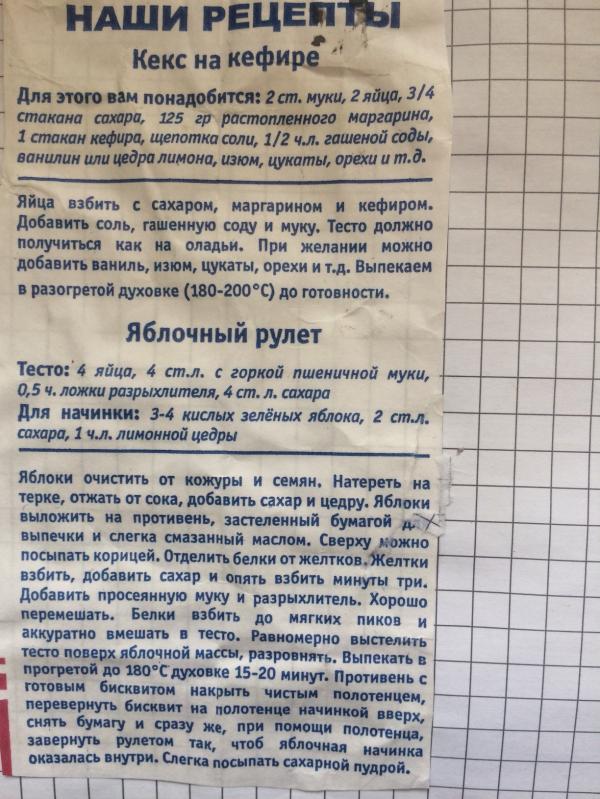 НАШИ РЕЦЕПТЫ
Кекс на кефире
Для этого вам понадобится: 2 ст. муки, 2 яйца, 3/4
стакана сахара, 125 гр растопленного маргарина,
1 стакан кефира, щепотка соли, 1/2 ч.л. гашеной соды,
ванилин или цедра лимона, изюм, цукаты, орехи и т.д.
Яйца взбить с сахаром, маргарином и кефиром.
Добавить соль, гашенную соду и муку. Тесто должно
получиться как на оладьи. При желании можно
добавить ваниль, изюм, цукаты, орехи и т.д. Выпекаем
в разогретой духовке (180-200°С) до готовности.
Яблочный рулет
Тесто: 4 яйца, 4 ст.л. с горкой пшеничной муки,
0,5 ч. ложки разрыхлителя, 4 ст. л. сахара
Для начинки: 3-4 кислых зелёных яблока, 2 ст.л.
сахара, 1 ч.л. лимонной цедры
Яблоки очистить от кожуры и семян. Натереть на
терке, отжать от сока, добавить сахар и цедру. Яблоки
выложить на противень, застеленный бумагой
выпечки и слегка смазанный маслом. Сверху можно
посыпать корицей. Отделить белки от желтков. Желтки
взбить, добавить сахар и опять взбить минуты три.
Добавить просеянную муку и разрыхлитель. Хорошо
перемешать. Белки взбить до мягких пиков и
аккуратно вмешать в тесто. Равномерно выстелить
тесто поверх яблочной массы, разровнять. Выпекать в
прогретой до 180°С духовке 15-20 минут. Противень с
готовым бисквитом накрыть чистым полотенцем,
перевернуть бисквит на полотенце начинкой вверх,
снять бумагу и сразу же, при помощи полотенца,
завернуть рулетом так, чтоб яблочная начинка
оказалась внутри. Слегка посыпать сахарной пудрой.